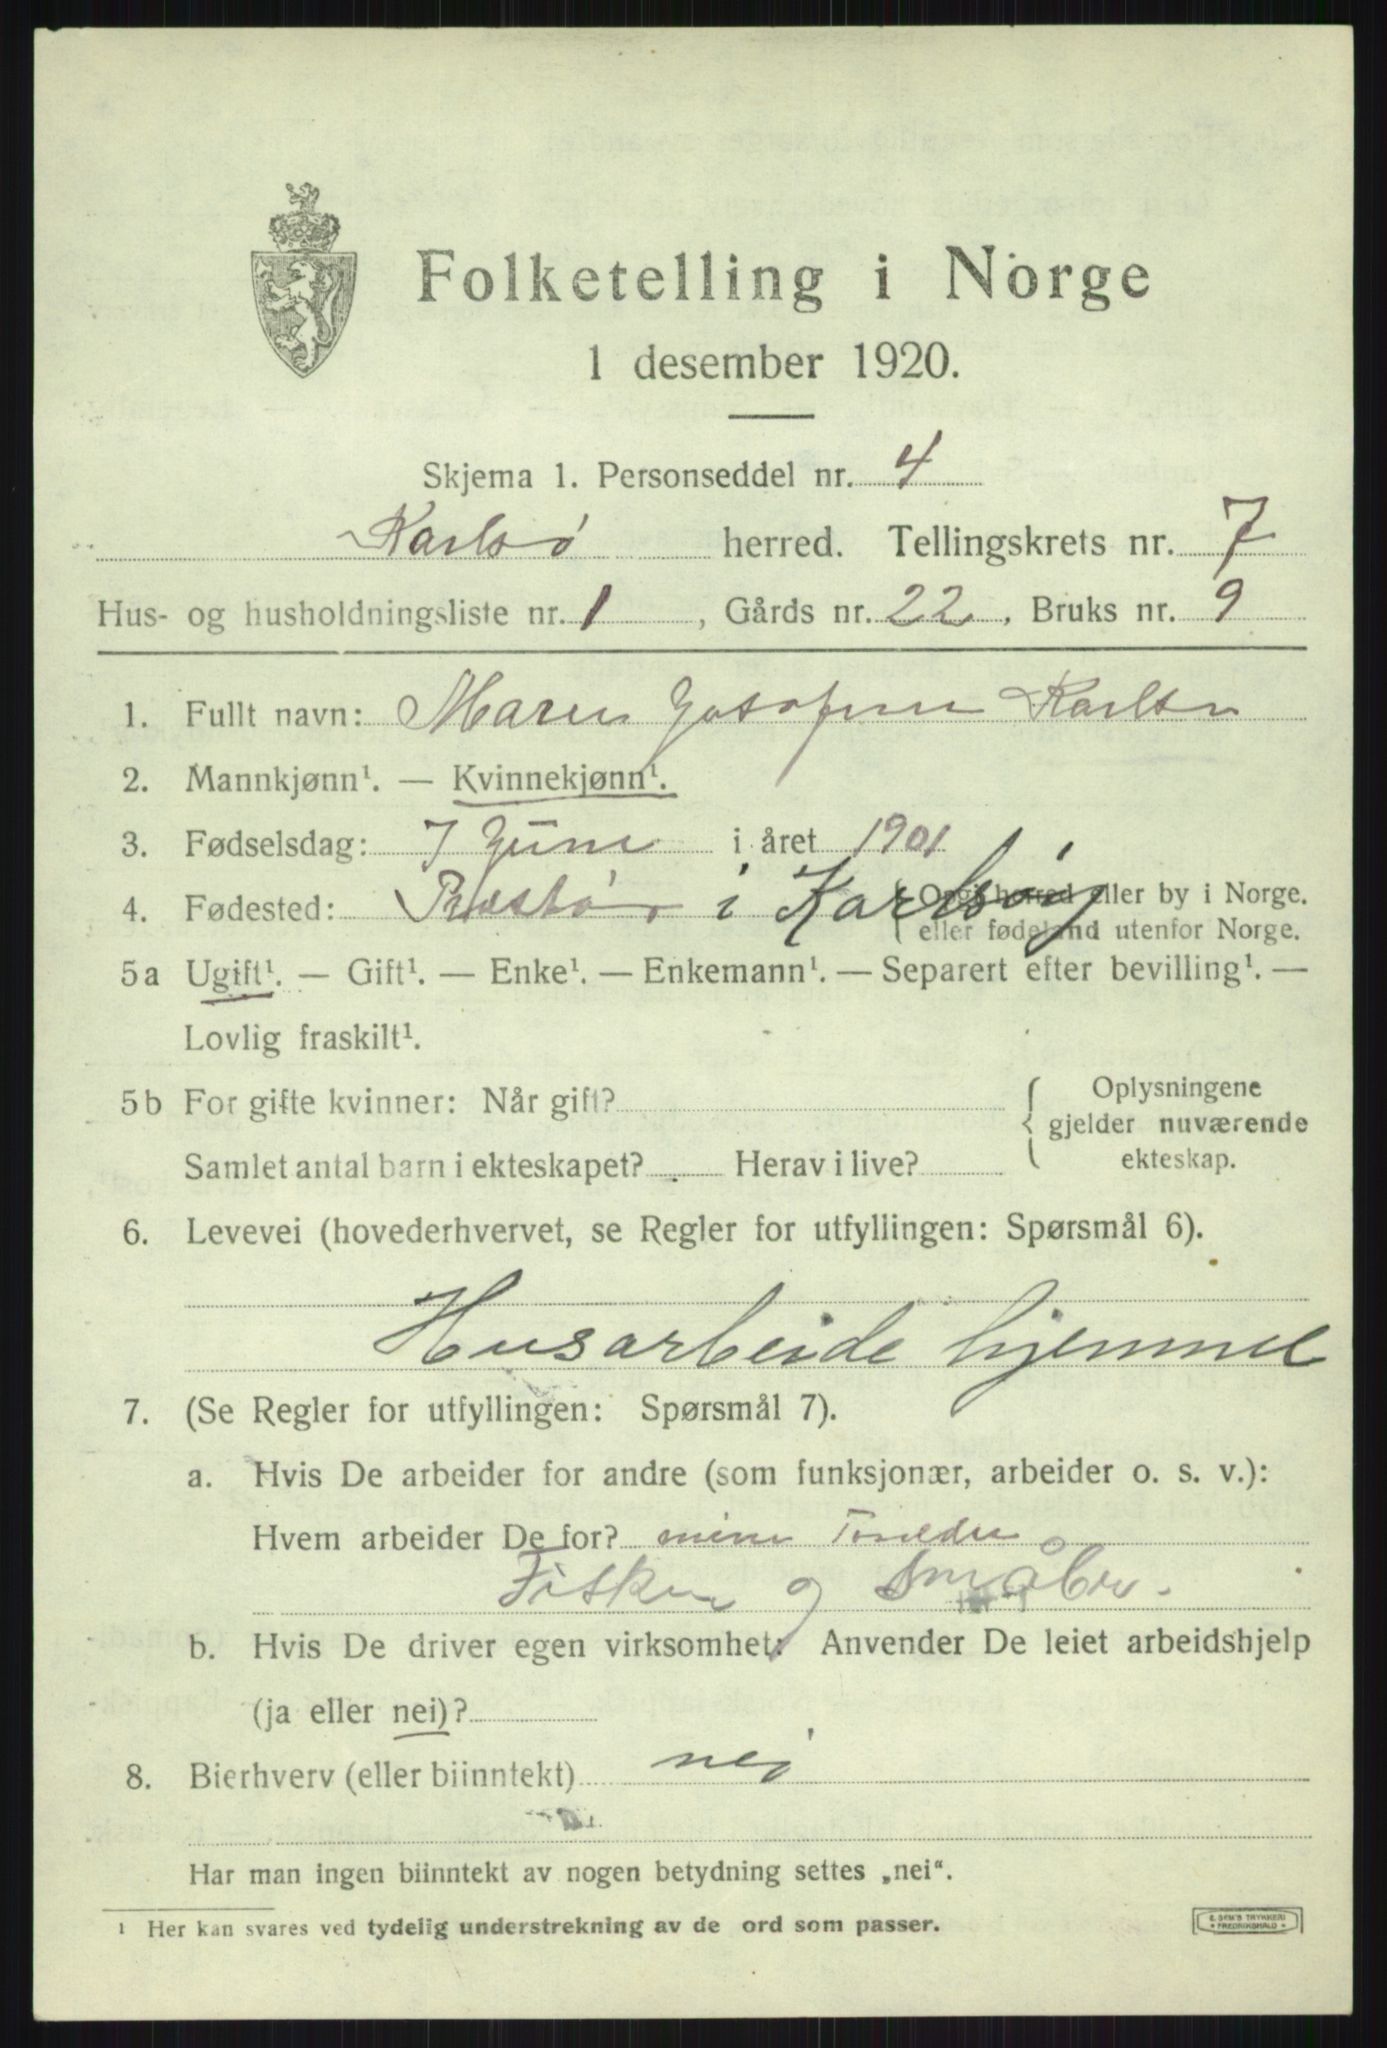 Folketelling i Norge
1 desember 1920.
Skjema 1. Personseddel nr. 4
Karlsø herred. Tellingskrets nr. 7
Hus- og husholdningsliste nr. 1, Gårds nr. 22, Bruks nr. 9
1. Fullt navn: Maren Josefine Karlsn
2. Mannkjønn¹. — Kvinnekjønn¹.
3. Fødselsdag: 7 June i året 1901
4. Fødested: i Karlsøy { Opgi herred eller by i Norge.
eller fødeland utenfor Norge.
5a Ugift¹. — Gift¹. — Enke¹. — Enkemann¹. — Separert efter bevilling¹. —
Lovlig fraskilt¹.
5b For gifte kvinner: Når gift? { Oplysningene
gjelder nuværende
ekteskap.
Samlet antal barn i ekteskapet? Herav i live?
6. Levevei (hovederhvervet, se Regler for utfyllingen: Spørsmål 6).
Husarbeide hjemme
7. (Se Regler for utfyllingen: Spørsmål 7).
a. Hvis De arbeider for andre (som funksjonær, arbeider o. s. v.):
Hvem arbeider De for? mine
Fisker og småbr.
b. Hvis De driver egen virksomhet: Anvender De leiet arbeidshjelp
(ja eller nei)?
8. Bierhverv (eller biinntekt) nei
Har man ingen biinntekt av nogen betydning settes „nei“.
¹ Her kan svares ved tydelig understrekning av de ord som passer.
E. SEM'S TRYKKERI
FREDRIKSHALD